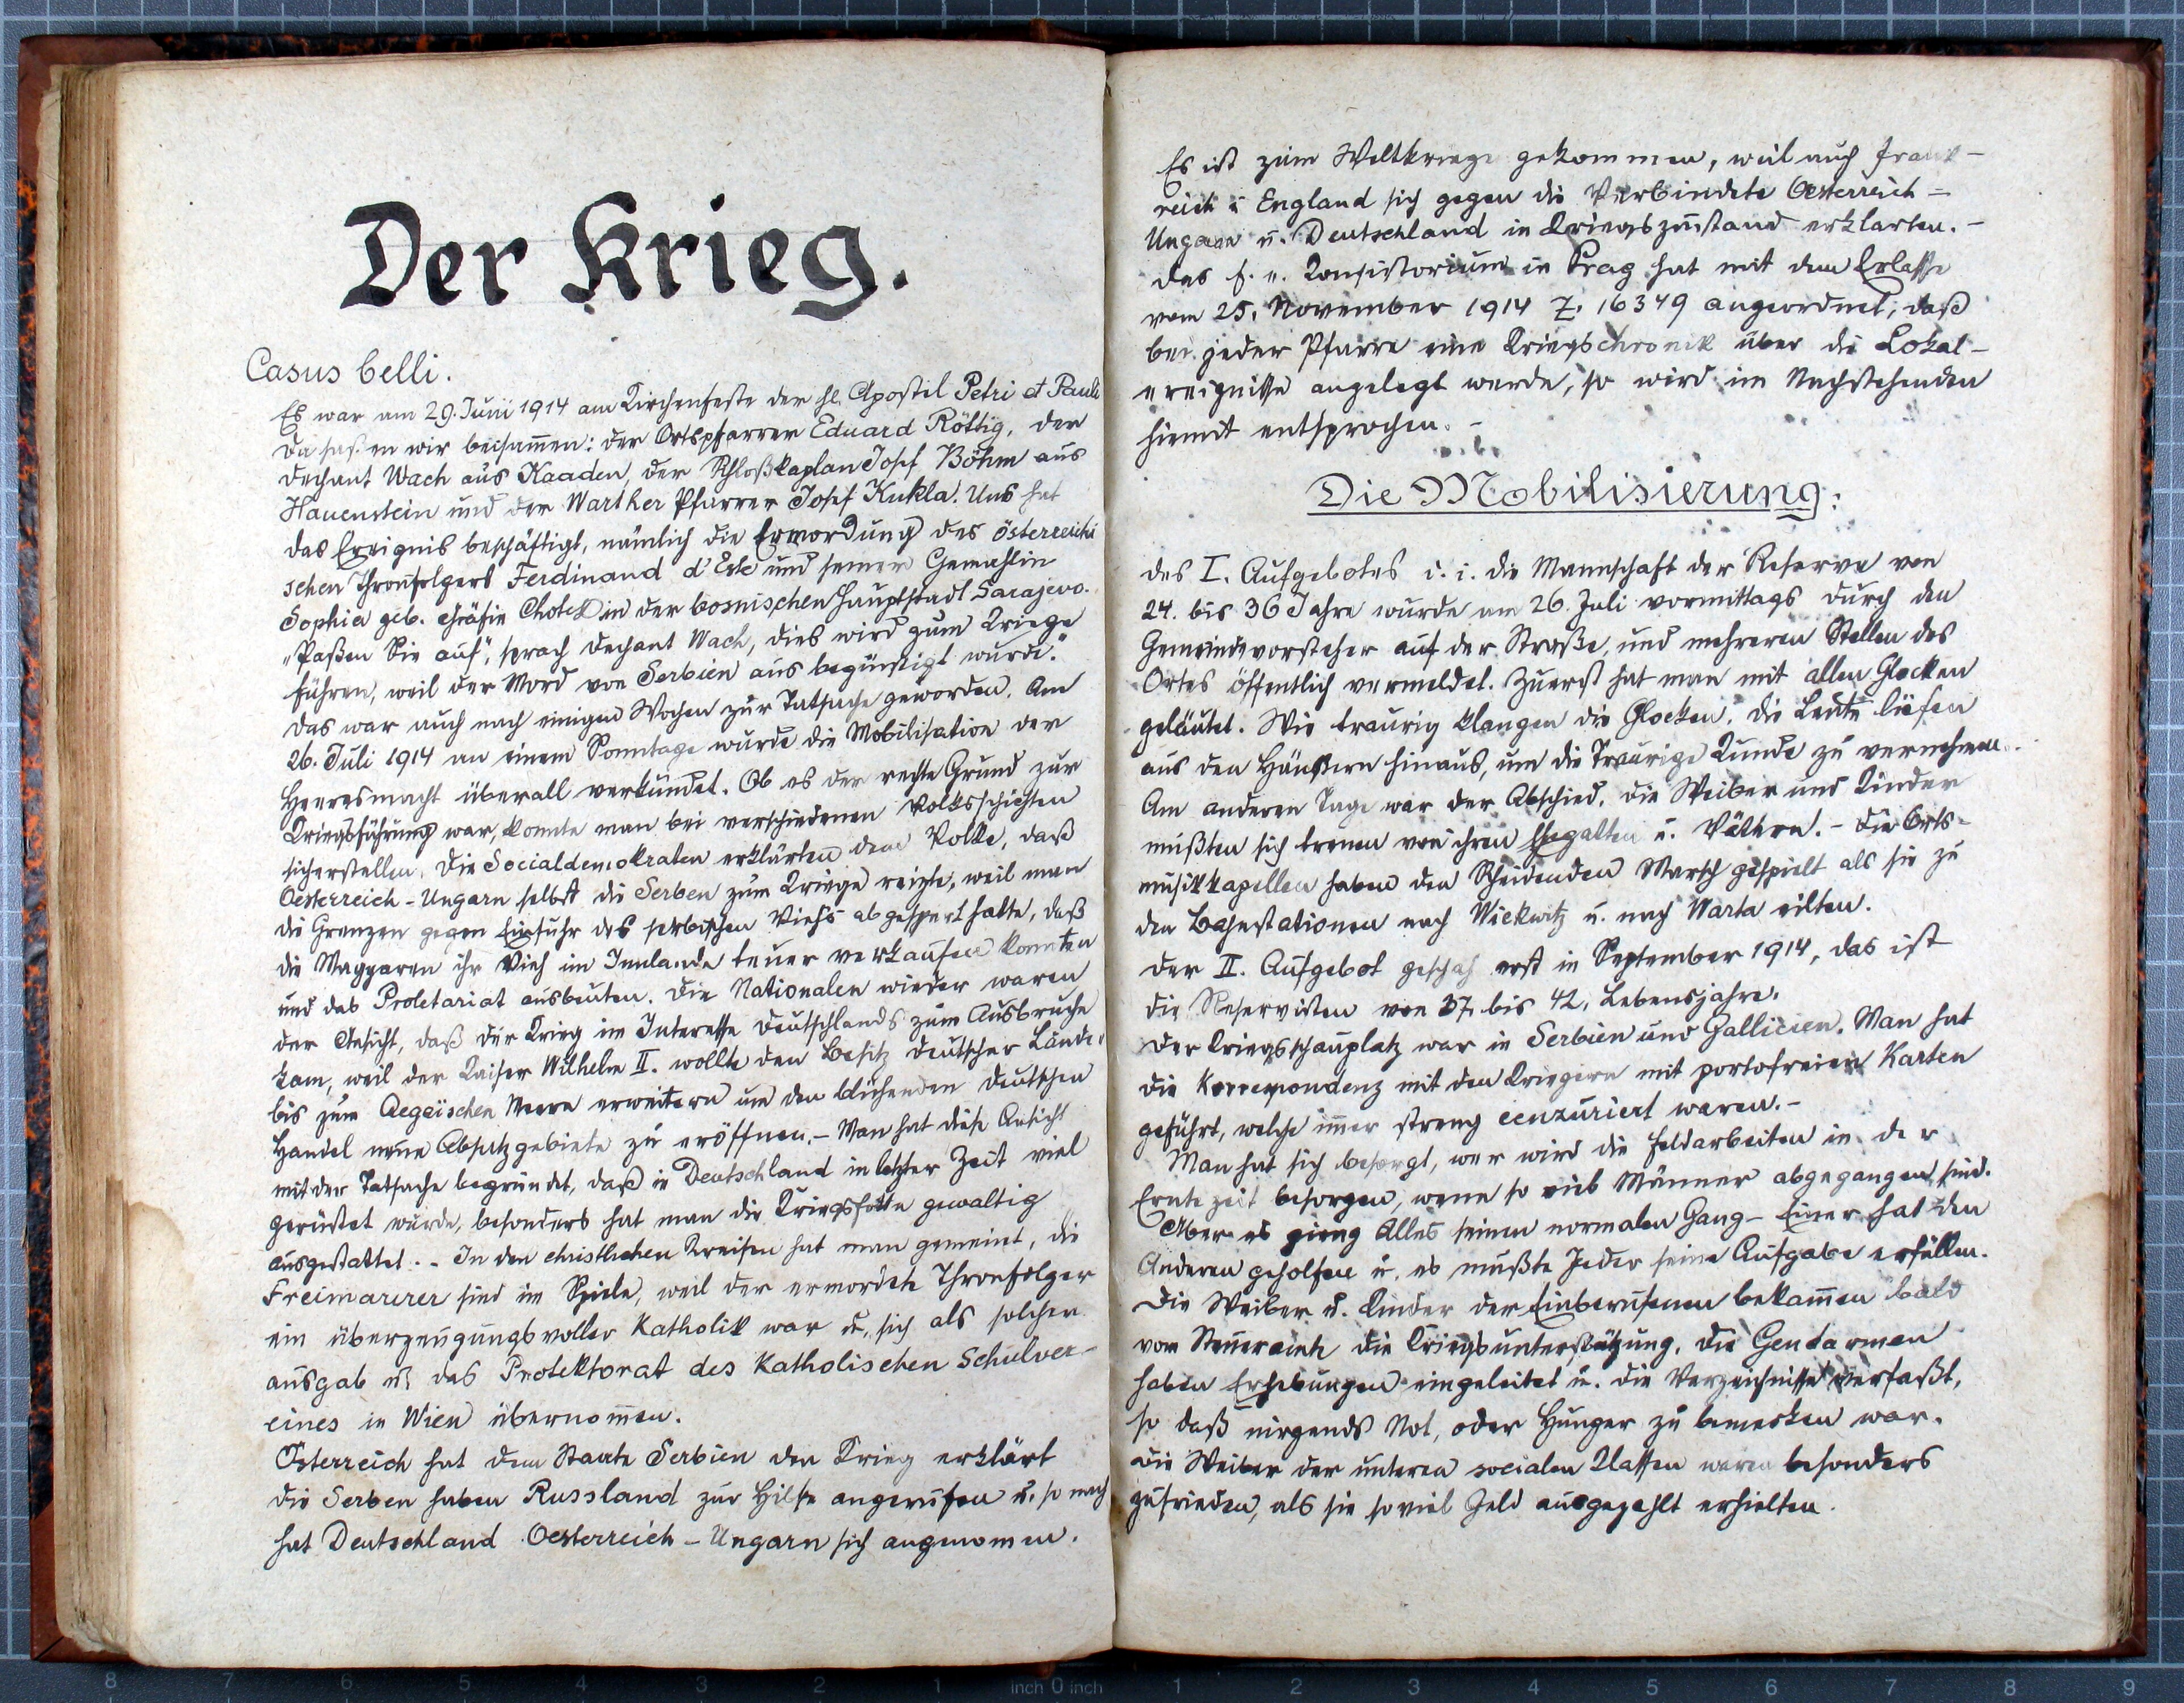 Der Krieg.
Casus belli.
Es war am 29. Juni 1914 am Kirchenfeste der hl. Apostel Petri et Pauli
Da saßen wir beisam̄en: der Ortspfarrer Eduard Röttig, der
Dechant Wach aus Kaaden, der Schloßkaplan Josef Böhm aus
Hauenstein und der Warther Pfarrer Josef Kukla. Uns hat
das Ereignis beschäftigt, nämlich die Ermordung des österreichi
schen Thronfolgers Ferdinand d'Este und seiner Gemahlin
Sophia geb. Gräfin Chotek in der bosnischen Hauptstadt Sarajevo.
„Paßen Sie auf", sprach Dechant Wach, dies wird zum Kriege
führen, weil der Mord von Serbien aus begünstigt wurde."
Das war auch nach einigen Wochen zur Tatsache geworden. Am
26. Juli 1914 an einem Sonntage wurde die Mobilisation der
Heeresmacht überall verkündet. Ob es der rechte Grund zur
Kriegsführung war, konnte man bei verschiedenen Volksschichten
sicherstellen. Die Socialdemokraten erklärten dem Volke, daß
Oesterreich-Ungarn selbst die Serben zum Kriege reizte, weil man
die Grenzen gegen Einfuhr des serbischen Viehs abgesperrt hatte, daß
die Magyaren ihr Vieh im Innlande teuer verkaufen konnten
und das Proletariat ausbeuten. Die Nationalen wieder waren
der Ansicht, daß der Krieg im Interesse Deutschlands zum Ausbruche
kam, weil der Kaiser Wilhelm II. wollte den Besitz deutscher Länder
bis zum Aegeischen Meere erweitern um den blühenden deutschen
Handel neue Absatzgebiete zu eröffnen. – Man hat diese Ansicht
mit der Tatsache begründet, daß in Deutschland in letzter Zeit viel
gerüstet wurde, besonders hat man die Kriegsflotte gewaltig
ausgestattet. - In den christlichen Kreisen hat man gemeint, die
Freimaurer sind im Spiele, weil der ermordete Thronfolger
ein überzeugungsvoller Katholik war u. sich als solchen
ausgab u. das Protektorat des Katholischen Schulver-
eines in Wien übernom̄en.
Österreich hat dem Staate Serbien den Krieg erklärt
die Serben haben Russland zur Hilfe angerufen u. so nach
hat Deutschland Oesterreich-Ungarn sich angenom̄en.
Es ist zum Weltkriege gekommen, weil auch Frank-
reich u. England sich gegen die Verbündete Oesterreich-
Ungarn u. Deutschland in Kriegszustand erklarten. -
Das f. e. Konsistorium in Prag hat mit dem Erlasse
vom 25. November 1914 Z. 16349 angeordnet, daß
bei jeder Pfarre eine Kriegschronik über die Lokal-
ereignisse angelegt werde, so wird im Nachstehenden
hiemit entsprochen. -
Die Mobilisierung:
des I. Aufgebotes d. i. die Mannschaft der Reserve von
24. bis 36 Jahre wurde am 26. Juli vormittags durch den
Gemeindevorsteher auf der Straße, und mehreren Stellen des
Ortes öffentlich vermeldet. Zuerst hat man mit allen Glocken
geläutet. Wie traurig klangen die Glocken. Die Leute liefen
aus den Häußern hinaus, um die Traurige Kunde zu vernehmen.
Am anderen Tage war der Abschied. Die Weiber und Kinder
mußten sich trenen von ihren Ehegatten u. Vätern. - Die Orts-
musikkapellen haben den Scheidenden Marsch gespielt als sie zu
den Bahnstationen nach Wickwitz u. nach Warta eilten.
Der II. Aufgebot geschah erst in September 1914, das ist
die Reservisten von 37. bis 42. Lebensjahre.
Der Kriegsschauplatz war in Serbien und Gallicien. Man hat
die Korrespondenz mit den Kriegern mit portofreien Karten
geführt, welche im̄er streng cenzuriert waren. -
Man hat sich besorgt, wer wird die Feldarbeiten in der
Erntezeit besorgen, wenn so viel Männer abgegangen sind.
Aber es gieng Alles seinen normalen Gang - Einer hat den
Anderen geholfen u. es mußte Jeder seine Aufgabe erfüllen.
Die Weiber u. Kinder der Einberufenen bekam̄en bald
vom Steueramte die Kriegsunterstützung. Die Gendarmen
haben Erhebungen eingeleitet u. die Verzeichnisse verfaßt,
so daß nirgends Not, oder Hunger zu bemerken war.
Die Weiber der unteren socialen Klassen waren besonders
zufrieden, als sie so viel Geld ausgezahlt erhielten.
8 7 6 5 4 3 2 1 inch 0 inch 1 2 3 4 5 6 7 8 9